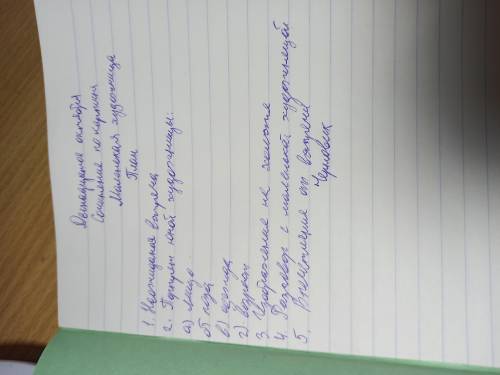 Двенадцатое октября
Сочинение по картине
Маленькая художница
План
1. Неожиданая встреча
2. Портрет юной художницы:
а) лицо
б) поза
в) одежда
г) возраст
3. Изображение на холсте
4. Разговор с маленькой художницей
5. Впечатления от встречи
Черновик